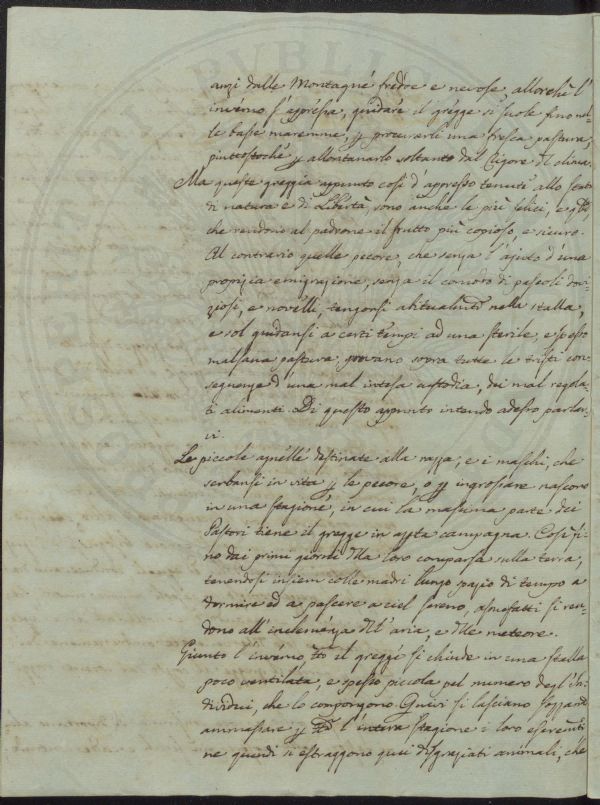 anzi dalle Montagne fredde e nevose, allorchè l'
inverno s'appressa, guidare il gregge si suole fino nel-
le basse maremme, p procurarli una fresca pastura,
piuttostochè p allontanarlo soltanto dal rigore del clima.
Ma queste greggia appunto così d'appresso tenute allo stato
di natura e di libertà, sono anche le più felici, e
che rendono al padrone il frutto più copioso, e sicuro.
Al contrario quelle pecore, che senza l'ajuto d'una
propizia emigrazione, senza il comodo di pascoli dovi-
ziosi, e novelli, tengonsi abitualmte nella stalla,
e sol guidansi a certi tempi ad una sterile, e spesso
malsana pastura, provano sopra tutte le tristi con-
seguenze d'una mal intesa custodia, dei mal regola-
ti alimenti. Di questo appunto intendo adesso parlar-
vi.
Le piccole agnelle destinate alla razza, e i maschi, che
serbansi in vita p le pecore, o p ingrossare nascono
in una stagione, in cui la massima parte dei
Pastori tiene il gregge in aperta campagna. Così fi-
no dai primi giorni della loro comparsa sulla terra,
tenendosi insiem colle madri lungo spazio di tempo a
dormire ed a pascere a ciel sereno, assuefatti si ren-
dono all'inclemenza dell'aria, e delle meteore.
Giunto l'inverno tto il gregge si chiude in una stalla
poco ventilata, e spesso piccola pel numero degl'In-
dividui, che lo compongono. Quivi si lasciano
ammassare p tta l'intera stagione i loro escrementi
ne quindi si estraggono quei disgraziati animali, che